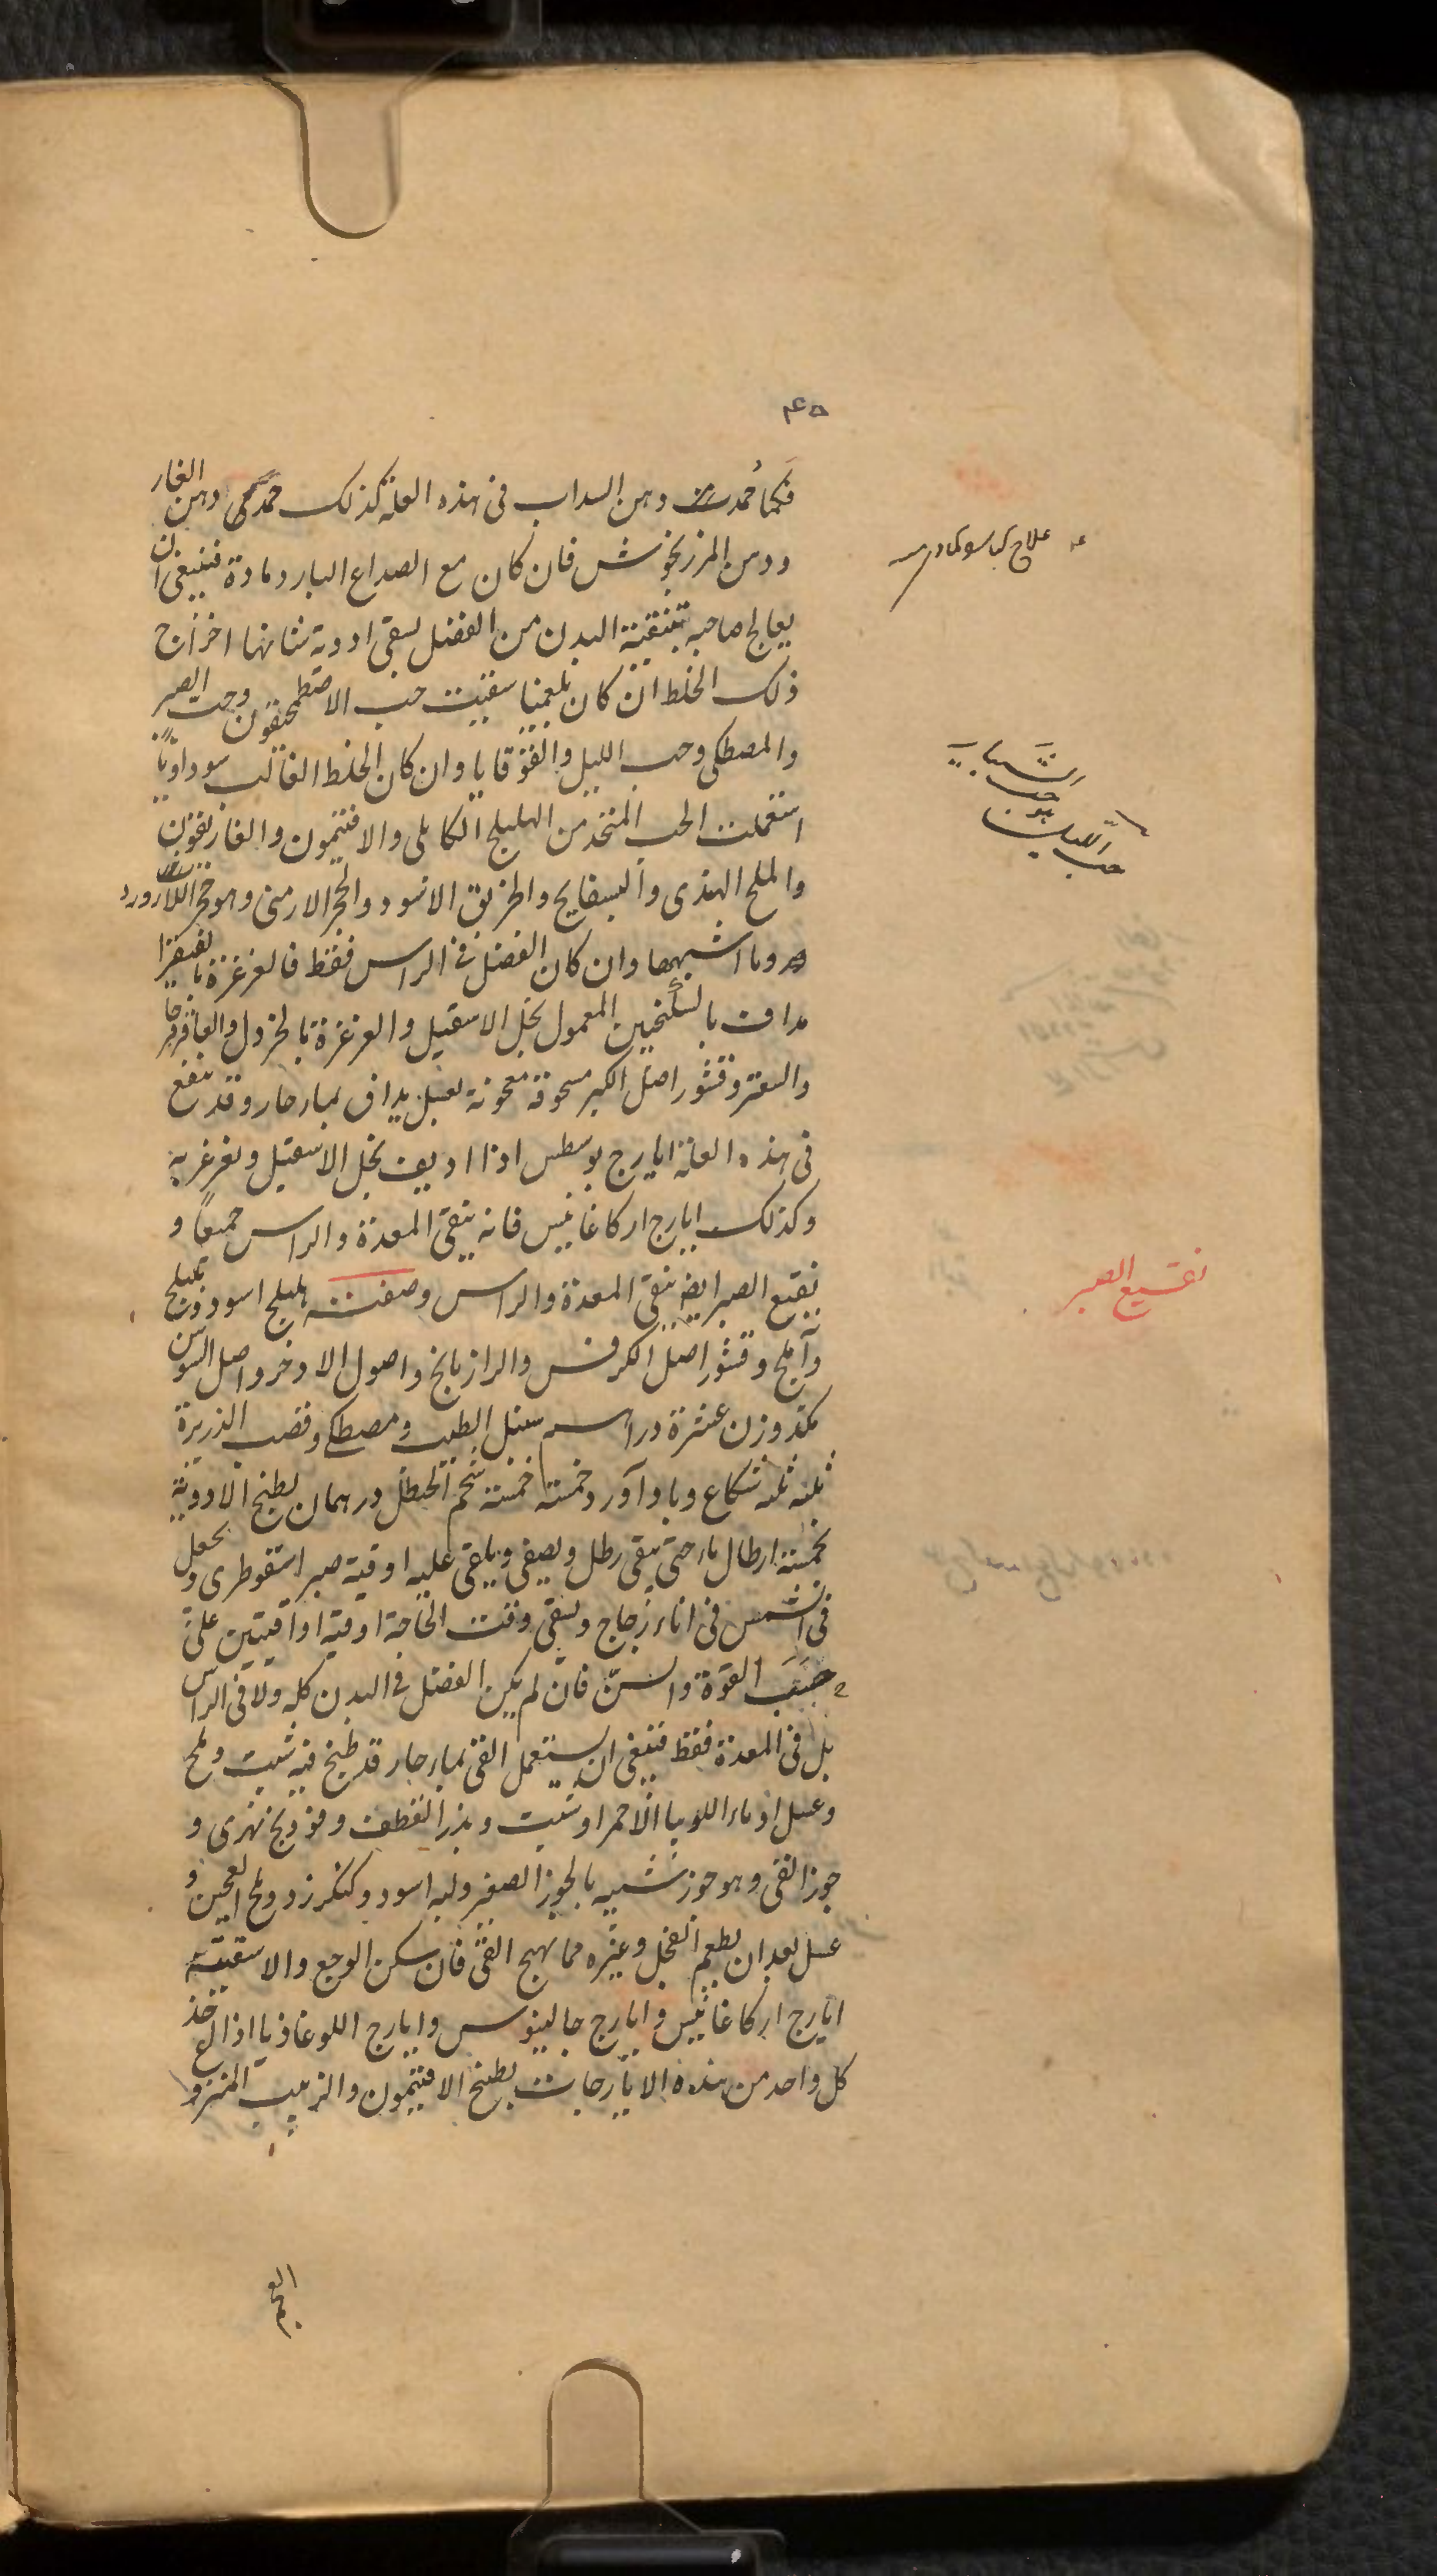 ۴۵
فكما حمدت دهن السداب فى هذه العلة كذلك حمدى دهن الغار
ودهن المرزنجوش فان كان مع الصداع البارد مادة فينبغى ان
يعالج صاحبه بتنقية البدن من الفضل بسقى ادوية شانها اخراج
ذلك الخلط ان كان بلغميا سقيت حب الاصطمحيقون وحب الصبر
والمصطكى وحب الليل والقوقايا وان كان الخلط الغالب سوداويا
استعملت الحب المتخذ من الهليلج الكابلى والافتيمون والغاريقون
والملح الهندى والبسفايج والخربق الاسود والحجر الارمنى وهو حجر اللازورد
وما اشبهها وان كان الفضل فى الراس فقط فالغرغرة بالفيقرا
مداف بالسكنجبين المعمول بخل الاسقيل والغرغرة بالخردل والعاقرقرحا
والسعتر وقشور اصل الكبر مسحوقة معجونة بعسل يداف بماء حار وقد ينفع
فى هذه العلة ايارج يوسطس اذا اديف بخل الاسقيل وتغرغر به
وكذلك ايارج اركاغانيس فانه ينقى المعدة والراس جميعا و
نقيع الصبر ايض ينقى المعدة والراس وصفته هليلج اسود وبليلج
وآملج وقشور اصل الكرفس والرازيانج واصول الاذخر واصل السوس
مكد وزن عشرة دراهم سنبل الطيب ومصطكى وقصب الذريرة
ثلثه ثلثه شكاع وبادآورد خمسة خمسة شحم الحنظل درهمان يطبخ الادوية
بخمسة ارطال ماء حتى يبقى رطل ويصفى ويلقى عليه اوقية صبر اسقوطرى ويجعل
فى الشمس فى اناء زجاج ويسقى وقت الحاجة اوقية او اقيتين على
حسب القوة والسن فان لم يكن الفضل فى البدن كله ولا فى الراس
بل فى المعدة فقط فينبغى ان يستعمل القئ بماء حار قد طبخ فيه شبت وملح
وعسل او ماء اللوبيا الاحمر او شبت وبذر القطف وفودنج نهرى و
جوز القئ وهو جوز شبيه بالجوز الصغير ولبه اسود وكنكرزد وملح العجين و
عسل بعد ان يطعم الفجل وغيره مما يهيج القئ فان سكن الوجع والا سقيته
ايارج اركاغانيس وايارج جالينوس وايارج اللوغاذيا اذا اخذ
كل واحد من هذه الايارجات بطبيخ الافتيمون والزبيب المنزوع
العجم
حب الشبيار
هو
حب الليل
نقيع الصبر